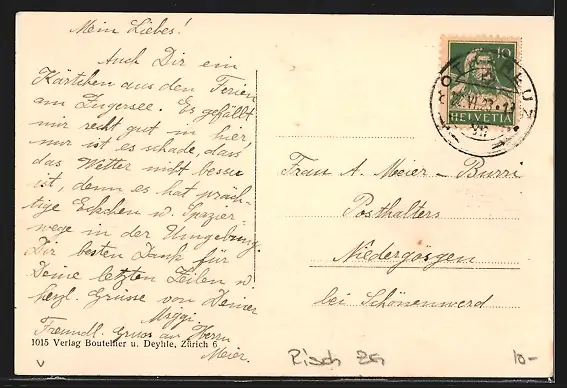 Mein Liebes!
Auch Dir ein
Kärtchen aus den Ferien
am Zugersee. Es gefällt
mir recht gut in hier
nur ist es schade, dass
das Wetter nicht besser
ist, denn es hat präch-
tige Eckchen u. Spazier-
wege in der Umgebung.
Dir besten Dank für
Deine letzten Zeilen u.
herzl. Grüsse von Deiner
Freundl. Gruss an Herrn
Meier.
1015 Verlag Boutellier u. Deyhle, Zürich 6
10
HELVETIA
VI.23
Frau A. Meier-Burri
Posthalters
Niedergösgen
bei Schönenwerd
Risch ZG
10-
v